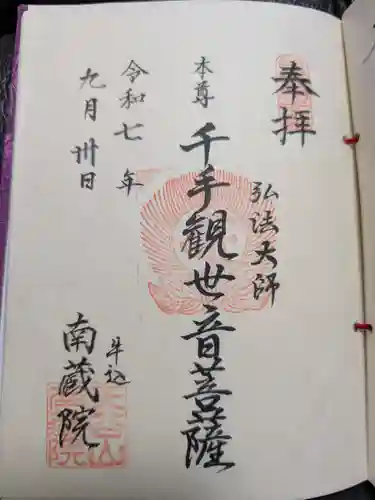 奉拝
弘法大師
本尊
千手觀世音菩薩
令和七年
九月卅日
牛込
南蔵院